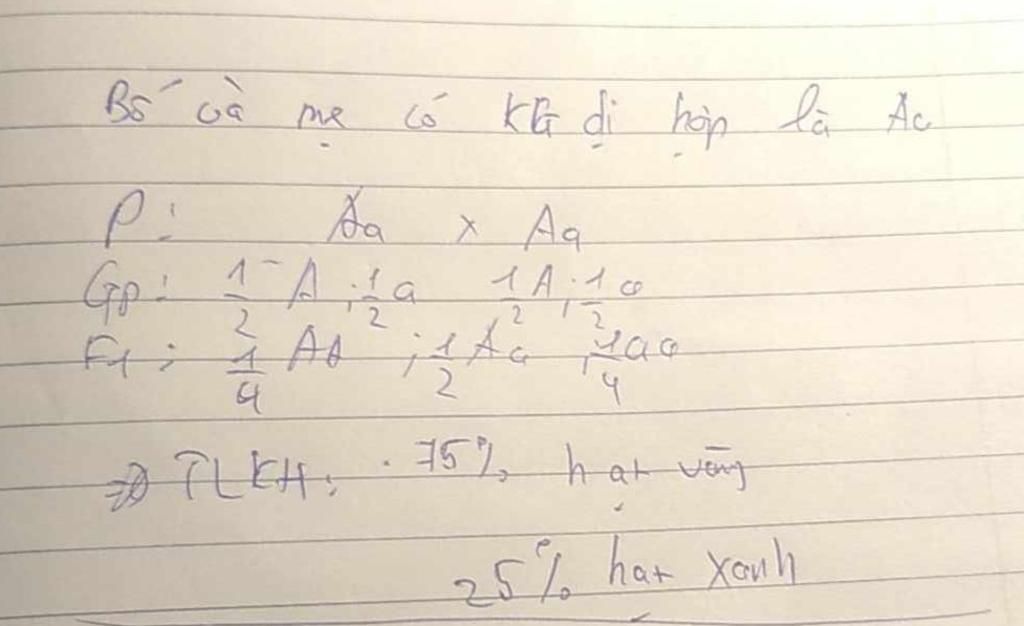 Bố và mẹ có KG dị hợp là Aa
P: Aa x Aa
Gp: 1/2 A; 1/2 a 1/2 A; 1/2 a
F1: 1/4 AA; 1/2 Aa; 1/4 aa
=> TLKH: 75% hạt vàng
25% hạt xanh